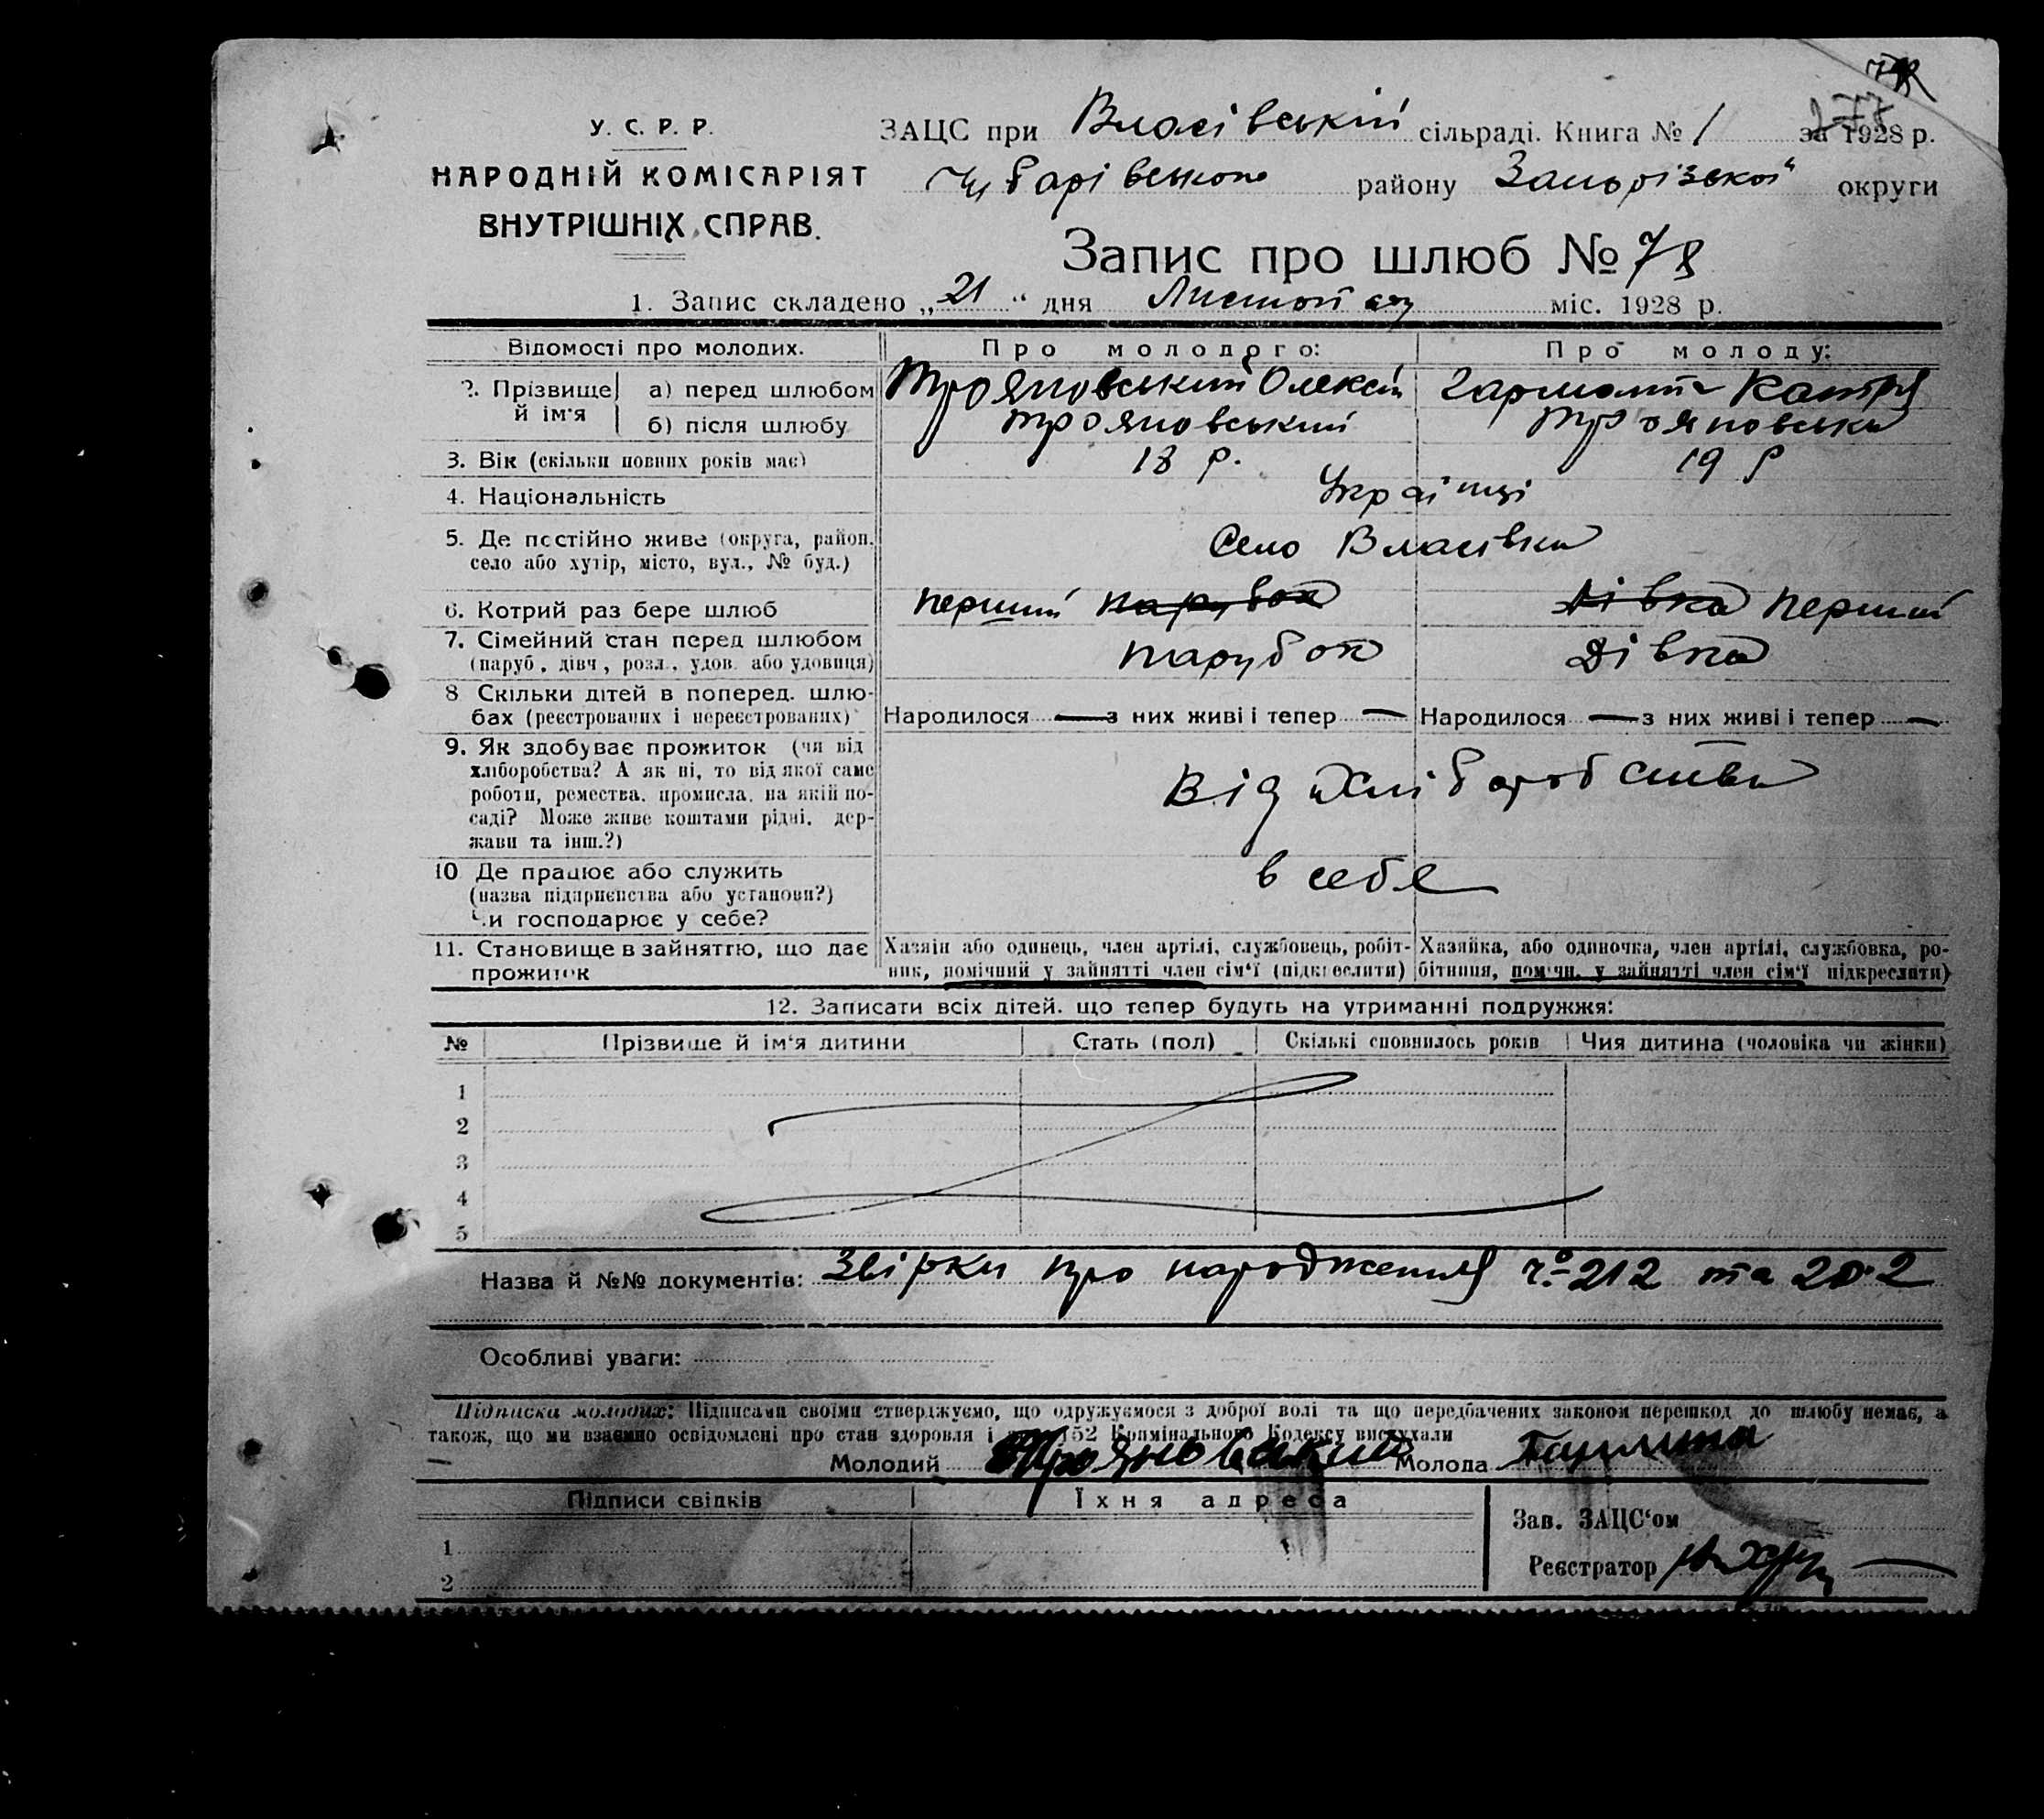 78
277
У. С. Р. Р.
НАРОДНІЙ КОМІСАРІЯТ
ВНУТРІШНІХ СПРАВ.
ЗАЦС при Власівській сільраді. Книга № 1 за 1928 р.
Чубарівського району Запорізької округи
Запис про шлюб № 78
1. Запис складено „21“ дня Листопаду міс. 1928 р.
Відомості про молодих.
Про молодого:
Про молоду:
2. Прізвище й ім'я
а) перед шлюбом Трояновський Олексій Гармата Катря
б) після шлюбу Трояновський Трояновська
3. Вік (скільки повних років має) 18 р. 19 р
4. Національність Українці
5. Де постійно живе (округа, район, село або хутір, місто, вул., № буд.) Село Власівка
6. Котрий раз бере шлюб перший парубок дівка перший
7. Сімейний стан перед шлюбом парубок Дівка
(паруб., дівч., розл., удов. або удовиця)
8 Скільки дітей в поперед. шлю-
бах (реєстрованих і нереєстрованих) Народилося — з них живі і тепер — Народилося — з них живі і тепер —
9. Як здобуває прожиток (чи від
хліборобства? А як ні, то від якої саме Від хліборобства
роботи, ремества, промисла, на якій по-
саді? Може живе коштами рідні, дер-
жави та інш.?)
10 Де працює або служить в себе
(назва підприємства або установи?)
Чи господарює у себе?
11. Становище в зайняттю, що дає прожиток
Хазяїн або одинець, член артілі, службовець, робіт-
ник, помічний у зайнятті член сім'ї (підкреслити)
Хазяйка, або одиночка, член артілі, службовка, ро-
бітниця, поміч. у зайнятті член сім'ї підкреслити)
12. Записати всіх дітей, що тепер будуть на утриманні подружжя:
№ Прізвище й ім'я дитини Стать (пол) Скількі сповнилось років Чия дитина (чоловіка чи жінки)
1
2
3
4
5
Назва й №№ документів: Звірки про народження ч. 212 та 202
Особливі уваги:
Підписка молодих: Підписами своїми стверджуємо, що одружуємося з доброї волі та що передбачених законом перешкод до шлюбу немає, а
також, що ми взаємно освідомлені про стан здоровля і 152 Крамінального Кодексу вислухали
Молодий Трояновський Молода
Підписи свідків Їхня адреса
Зав. ЗАЦС'ом
1
Реєстратор
2